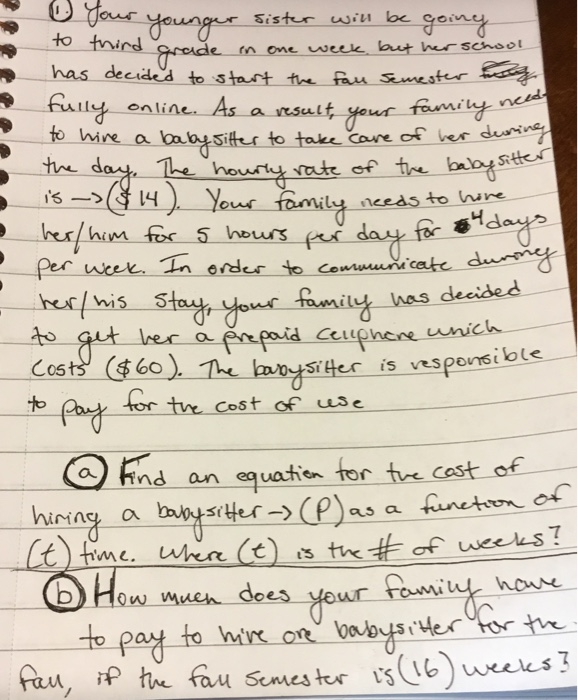 1.) Your younger sister will be going
to third grade in one week but her school
has decided to start the fall semester
fully online. As a result, your family needs
to hire a babysitter to take care of her during
the day. The hourly rate of the babysitter
is → ($14). Your family needs to hire
her/him for 5 hours per day for 4 days
per week. In order to communicate during
her/his stay, your family has decided
to get her a prepaid cellphone which
costs ($60). The babysitter is responsible
to pay for the cost of use
(a) Find an equation for the cost of
hiring a babysitter → (P) as a function of
(t) time. where (t) is the # of weeks?
(b) How much does your family have
to pay to hire one babysitter for the
fall, if the fall semester is (16) weeks?